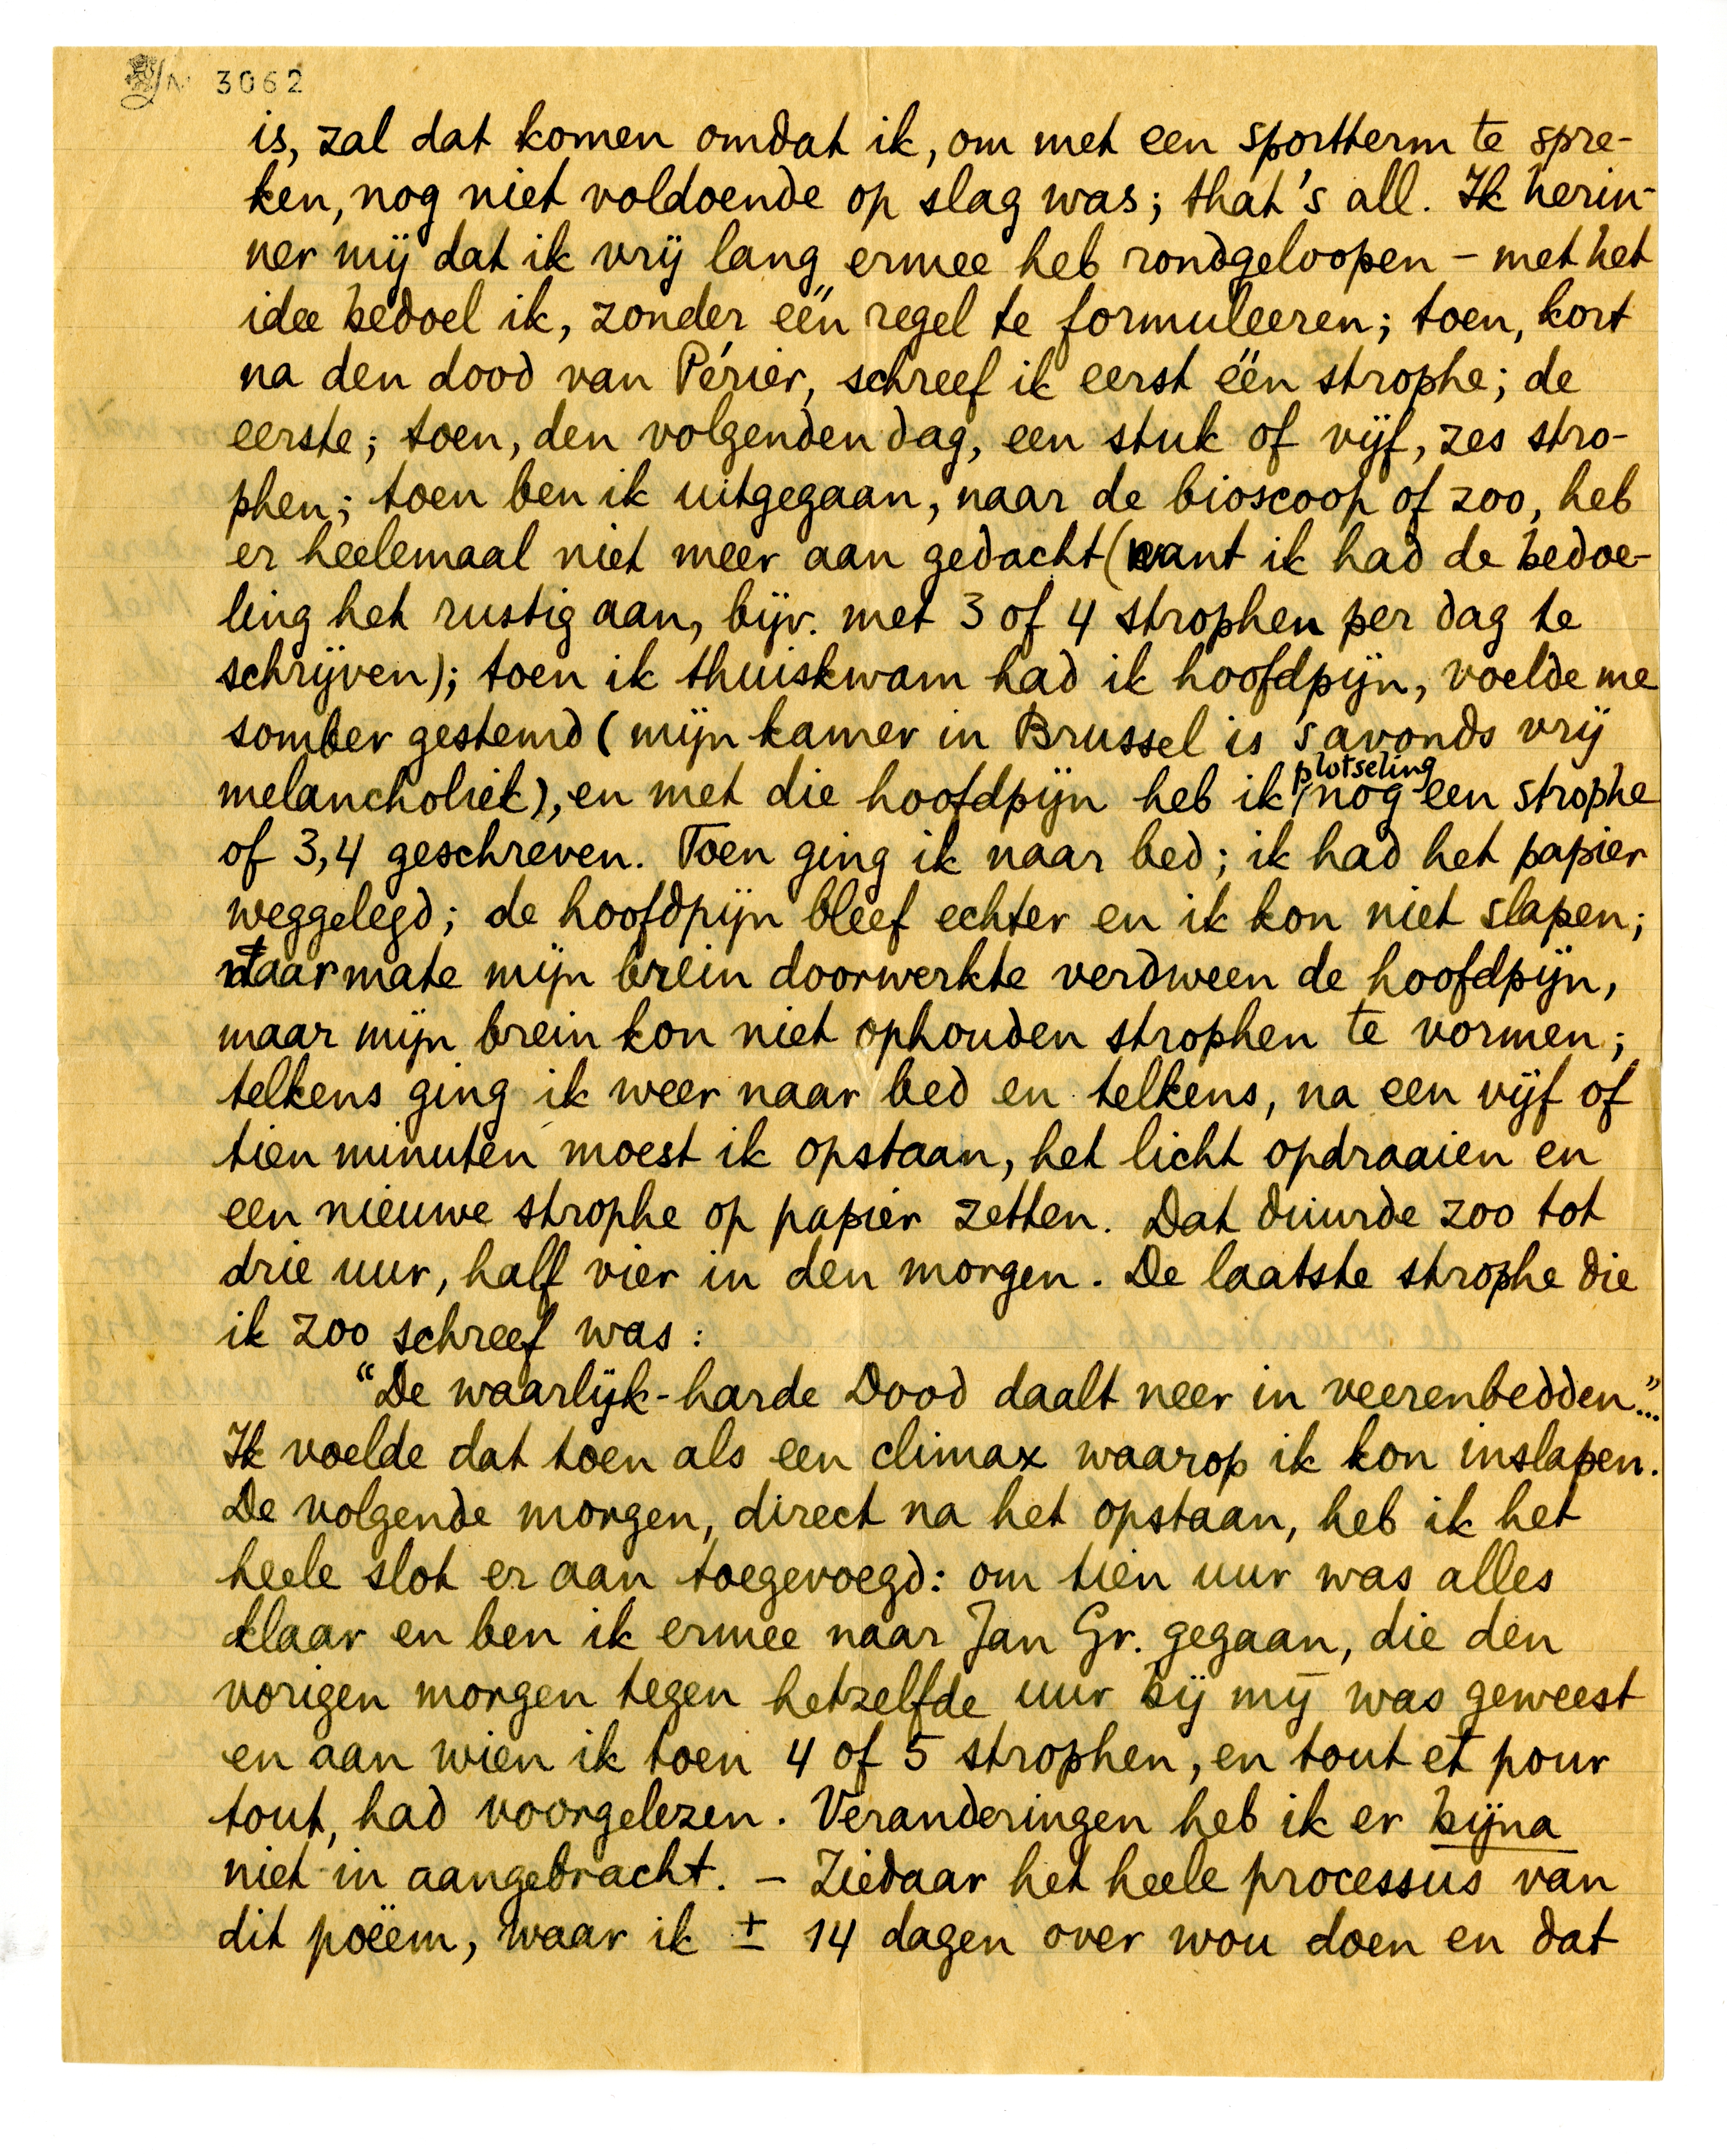 N 3062
is, zal dat komen omdat ik, om met een sportterm te spre-
ken, nog niet voldoende op slag was; that's all. Ik herin-
ner mij dat ik vrij lang ermee heb rondgeloopen – met het
idee bedoel ik, zonder één regel te formuleeren; toen, kort
na den dood van Périer, schreef ik eerst één strophe; de
eerste; toen, den volgenden dag, een stuk of vijf, zes stro-
phen; toen ben ik uitgegaan, naar de bioscoop of zoo, heb
er heelemaal niet meer aan gedacht (want ik had de bedoe-
ling het rustig aan, bijv. met 3 of 4 strophen per dag te
schrijven); toen ik thuiskwam had ik hoofdpijn, voelde me
somber gestemd (mijn kamer in Brussel is 's avonds vrij
melancholiek), en met die hoofdpijn heb ik plotseling nog een strophe
of 3,4 geschreven. Toen ging ik naar bed; ik had het papier
weggelegd; de hoofdpijn bleef echter en ik kon niet slapen;
naarmate mijn brein doorwerkte verdween de hoofdpijn,
maar mijn brein kon niet ophouden strophen te vormen;
telkens ging ik weer naar bed en telkens, na een vijf of
tien minuten moest ik opstaan, het licht opdraaien en
een nieuwe strophe op papier zetten. Dat duurde zoo tot
drie uur, half vier in den morgen. De laatste strophe die
ik zoo schreef was:
"De waarlijk-harde Dood daalt neer in veerenbedden"...
Ik voelde dat toen als een climax waarop ik kon inslapen.
De volgende morgen, direct na het opstaan, heb ik het
heele slot er aan toegevoegd: om tien uur was alles
klaar en ben ik ermee naar Jan Gr. gegaan, die den
vorigen morgen tegen hetzelfde uur bij mij was geweest
en aan wien ik toen 4 of 5 strophen, en tout et pour
tout, had voorgelezen. Veranderingen heb ik er bijna
niet in aangebracht. – Ziedaar het heele processus van
dit poëem, waar ik ± 14 dagen over wou doen en dat